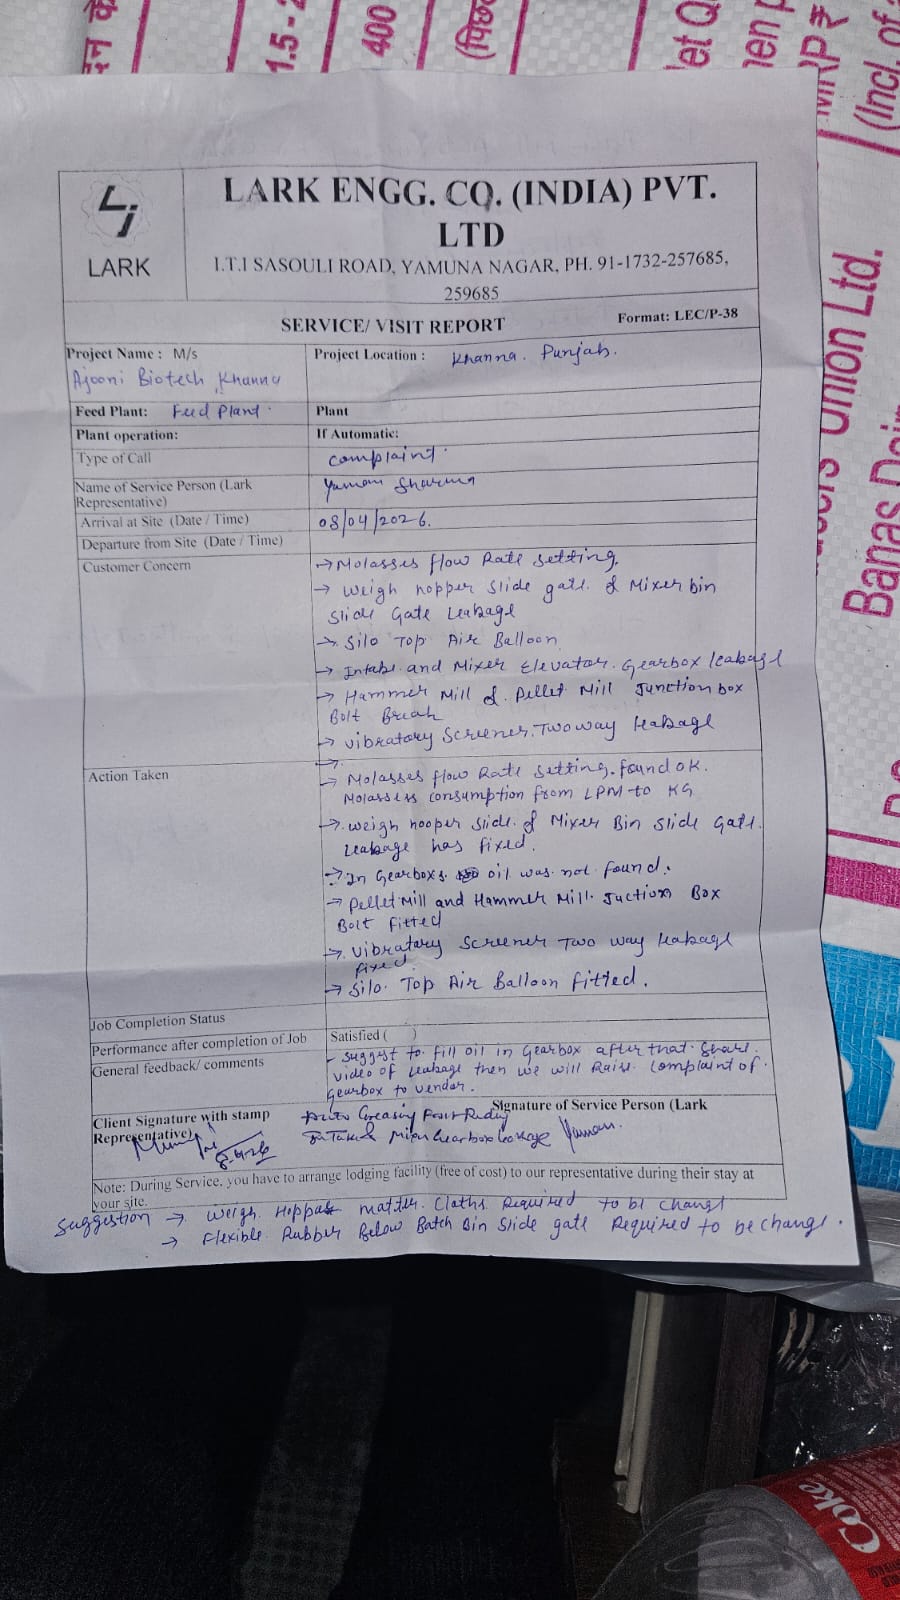 1.5 - 2
400
(Incl. of
LARK
LARK ENGG. CO. (INDIA) PVT.
LTD
I.T.I SASOULI ROAD, YAMUNA NAGAR, PH. 91-1732-257685,
259685
SERVICE/ VISIT REPORT
Format: LEC/P-38
Project Name : M/s
Ajooni Biotech Khanna
Project Location : Khanna. Punjab.
Feed Plant: Feed Plant.
Plant
Plant operation:
If Automatic:
Type of Call
complaint.
Name of Service Person (Lark
Representative)
Yaman Sharma
Arrival at Site (Date / Time)
08/04/2026.
Departure from Site (Date / Time)
Customer Concern
→ Molasses flow Rate setting.
→ weigh hopper slide gate & Mixer bin
slide Gate Leakage
→ Silo Top Air Balloon
→ Intake and Mixer Elevator. Gearbox leakage
→ Hammer Mill & Pellet Mill Junction box
Bolt Break
→ vibratory Screener. Two way leakage
→
Action Taken
→ Molasses flow Rate setting. found OK.
Molassess consumption from LPM to KG
→ weigh hooper slide & Mixer Bin Slide Gate.
Leakage has fixed.
→ In Gearboxs oil was not found.
→ Pellet Mill and Hammer Mill. Juction Box
Bolt fitted
→ vibratory Screener Two way leakage
fixed
→ Silo Top Air Balloon fitted.
Job Completion Status
Performance after completion of Job
Satisfied ( )
General feedback/ comments
- suggest to fill oil in gearbox after that share
video of leakage then we will Raise complaint of
gearbox to vendor.
Client Signature with stamp
Signature of Service Person (Lark
Representative)
Auto Greasing
Gearbox Leakage
Yaman.
Note: During Service, you have to arrange lodging facility (free of cost) to our representative during their stay at
your site.
Suggestion → weigh. Hopper matter. Cloths Required to be change
→ Flexible Rubber Below Batch Bin Slide gate Required to be change.
Union Ltd.
Banas
Coke